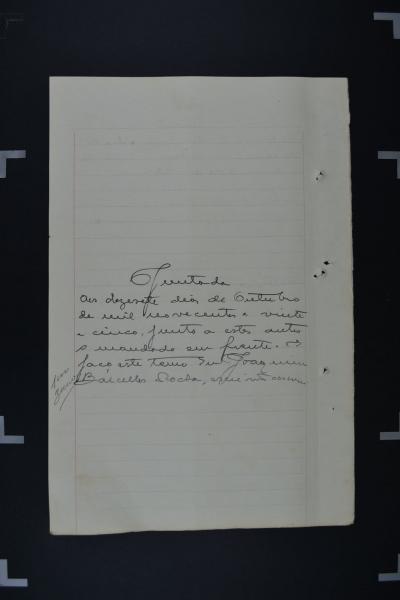 Juntada
Aos dezesete dias de Outubro
de mil novecentos e vinte
e cinco, junto a estes autos
o mandado em frente. Do
faço este termo. Eu Joaquim
Barcellos Rocha, escrivão